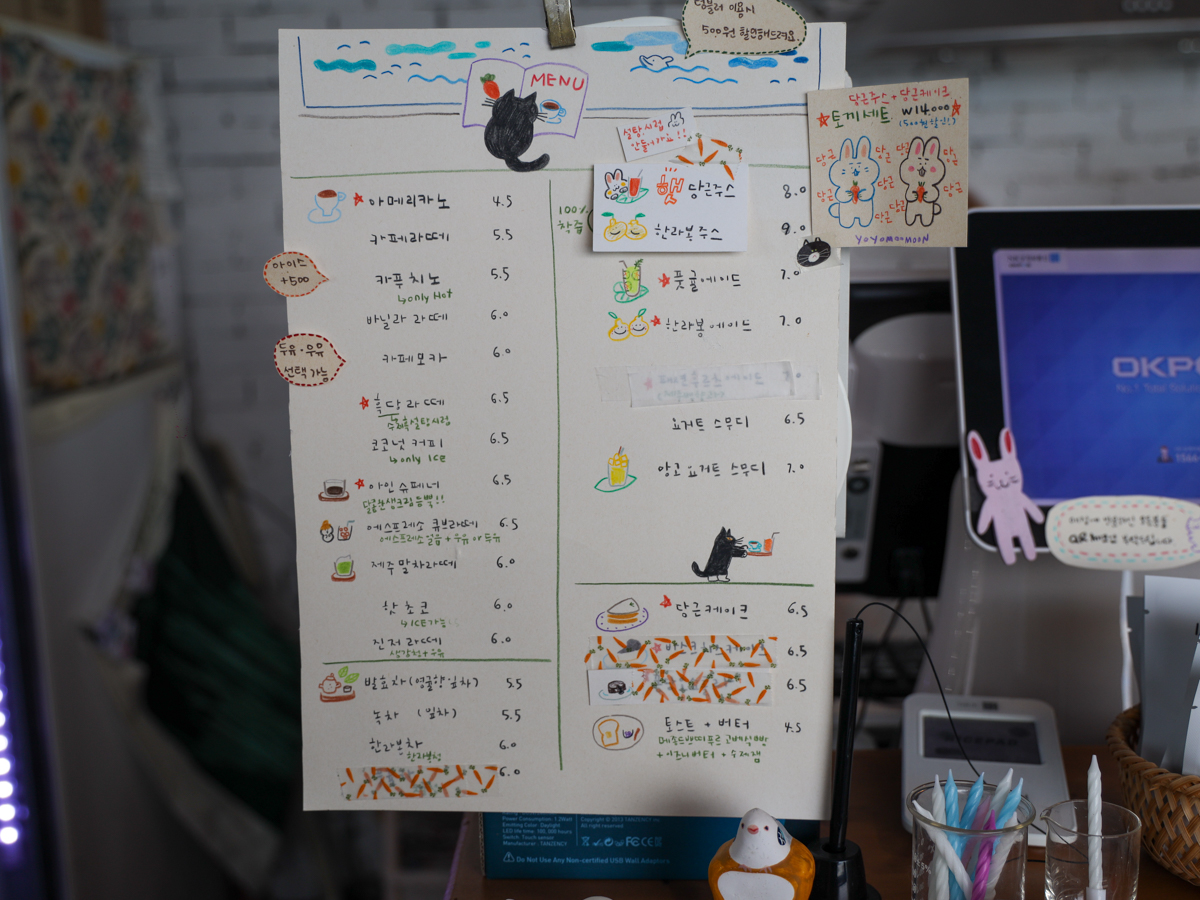 텀블러 이용시
500원 할인해드려요
MENU
설탕시럽
안들어가요!!
당근주스+당근케이크
토끼세트 ₩14,000
(500원 할인!)
당근
당근
당근
당근
당근
당근
당근
당근
아메리카노 4.5
카페라떼 5.5
아이스
+500
카푸치노 5.5
↳only Hot
바닐라 라떼 6.0
두유·우유
선택 가능
카페모카 6.0
흑당라떼 6.5
수제흑설탕시럽
코코넛 커피 6.5
↳only ICE
아인슈페너 6.5
에스프레소 큐브라떼 6.5
에스프레소얼음 + 우유 or 두유
제주말차라떼 6.0
핫초코 6.0
↳ICE가능
진저라떼 6.0
생강청+우유
발효차(영귤향잎차) 5.5
녹차 (잎차) 5.5
한라봉차 6.0
한라봉청
6.0
100%
착즙
햇 당근주스 8.0
한라봉주스 9.0
풋귤에이드 7.0
한라봉에이드 7.0
요거트 스무디 6.5
망고요거트 스무디 7.0
당근케이크 6.5
6.5
6.5
토스트 + 버터 4.5
+ 이즈니버터 + 수제잼
OKPO
No.1 Total Solution
QR
Power Consumption: 1.2Watt
Emitting Color: Daylight
LED life time: 100,000 hours
Switch: Touch sensor
Manufacturer: TANZENCY
Copyright © 2015 TANZENCY
All right reserved
Do Not Use Any Non-certified USB Wall Adapters